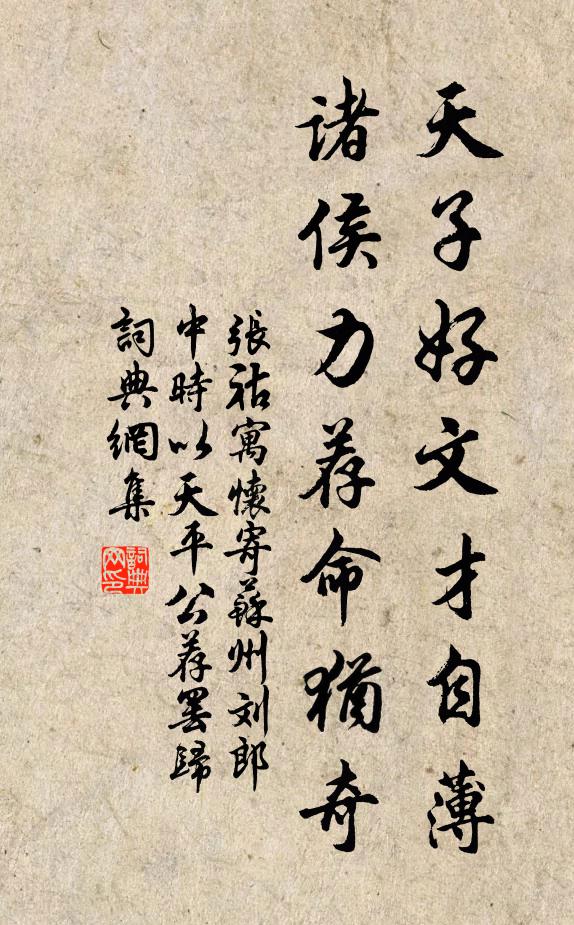 天子好文才自薄
诸侯力荐命猶奇
張祜寓懷寄蘇州刘郎
中時以天平公荐罢歸
詞典網集
詞典
网印